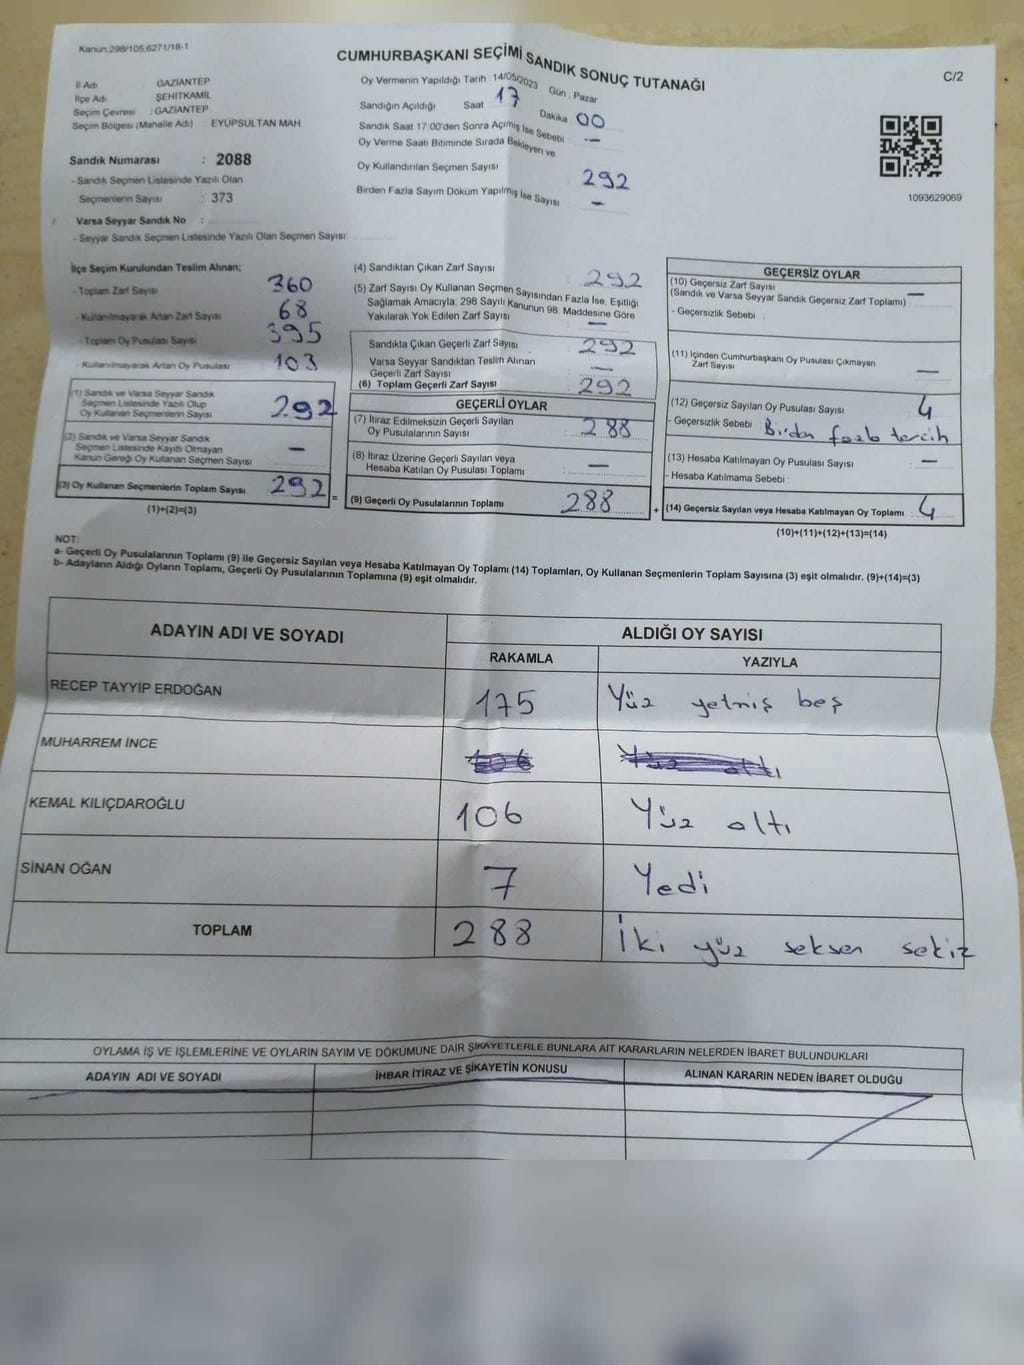 Kanun:298/105,6271/18-1
CUMHURBAŞKANI SEÇİMİ SANDIK SONUÇ TUTANAĞI
C/2
İl Adı GAZİANTEP
İlçe Adı ŞEHİTKAMİL
Seçim Çevresi : GAZİANTEP
Seçim Bölgesi (Mahalle Adı) : EYÜPSULTAN MAH
Sandık Numarası : 2088
- Sandık Seçmen Listesinde Yazılı Olan
Seçmenlerin Sayısı : 373
Varsa Seyyar Sandık No :
- Seyyar Sandık Seçmen Listesinde Yazılı Olan Seçmen Sayısı:
Oy Vermenin Yapıldığı Tarih : 14/05/2023 Gün : Pazar
Sandığın Açıldığı Saat : 17 Dakika : 00
Sandık Saat 17:00'den Sonra Açılmış İse Sebebi : —
Oy Verme Saati Bitiminde Sırada Bekleyen ve
Oy Kullandırılan Seçmen Sayısı : 292
Birden Fazla Sayım Döküm Yapılmış İse Sayısı : —
1093629069
İlçe Seçim Kurulundan Teslim Alınan;
- Toplam Zarf Sayısı 360
- Kullanılmayarak Artan Zarf Sayısı 68
- Toplam Oy Pusulası Sayısı 395
- Kullanılmayarak Artan Oy Pusulası 103
(1) Sandık ve Varsa Seyyar Sandık
Seçmen Listesinde Yazılı Olup
Oy Kullanan Seçmenlerin Sayısı 292
(2) Sandık ve Varsa Seyyar Sandık
Seçmen Listesinde Kayıtlı Olmayan
Kanun Gereği Oy Kullanan Seçmen Sayısı —
(3) Oy Kullanan Seçmenlerin Toplam Sayısı 292 =
(1)+(2)=(3)
(4) Sandıktan Çıkan Zarf Sayısı : 292
(5) Zarf Sayısı Oy Kullanan Seçmen Sayısından Fazla İse, Eşitliği
Sağlamak Amacıyla; 298 Sayılı Kanunun 98. Maddesine Göre
Yakılarak Yok Edilen Zarf Sayısı : —
Sandıkta Çıkan Geçerli Zarf Sayısı : 292
Varsa Seyyar Sandıktan Teslim Alınan
Geçerli Zarf Sayısı : —
(6) Toplam Geçerli Zarf Sayısı : 292
GEÇERLİ OYLAR
(7) İtiraz Edilmeksizin Geçerli Sayılan
Oy Pusulalarının Sayısı : 288
(8) İtiraz Üzerine Geçerli Sayılan veya
Hesaba Katılan Oy Pusulası Toplamı : —
(9) Geçerli Oy Pusulalarının Toplamı : 288 +
GEÇERSİZ OYLAR
(10) Geçersiz Zarf Sayısı
(Sandık ve Varsa Seyyar Sandık Geçersiz Zarf Toplamı) : —
- Geçersizlik Sebebi :
(11) İçinden Cumhurbaşkanı Oy Pusulası Çıkmayan
Zarf Sayısı : —
(12) Geçersiz Sayılan Oy Pusulası Sayısı : 4
- Geçersizlik Sebebi : Birden fazla tercih
(13) Hesaba Katılmayan Oy Pusulası Sayısı : —
- Hesaba Katılmama Sebebi :
(14) Geçersiz Sayılan veya Hesaba Katılmayan Oy Toplamı : 4
(10)+(11)+(12)+(13)=(14)
NOT:
a- Geçerli Oy Pusulalarının Toplamı (9) ile Geçersiz Sayılan veya Hesaba Katılmayan Oy Toplamı (14) Toplamları, Oy Kullanan Seçmenlerin Toplam Sayısına (3) eşit olmalıdır. (9)+(14)=(3)
b- Adayların Aldığı Oyların Toplamı, Geçerli Oy Pusulalarının Toplamına (9) eşit olmalıdır.
ADAYIN ADI VE SOYADI ALDIĞI OY SAYISI
RAKAMLA YAZIYLA
RECEP TAYYİP ERDOĞAN 175 Yüz yetmiş beş
MUHARREM İNCE 106 Yüz altı
KEMAL KILIÇDAROĞLU 106 Yüz altı
SİNAN OĞAN 7 Yedi
TOPLAM 288 İki yüz seksen sekiz
OYLAMA İŞ VE İŞLEMLERİNE VE OYLARIN SAYIM VE DÖKÜMÜNE DAİR ŞİKAYETLERLE BUNLARA AİT KARARLARIN NELERDEN İBARET BULUNDUKLARI
ADAYIN ADI VE SOYADI İHBAR İTİRAZ VE ŞİKAYETİN KONUSU ALINAN KARARIN NEDEN İBARET OLDUĞU